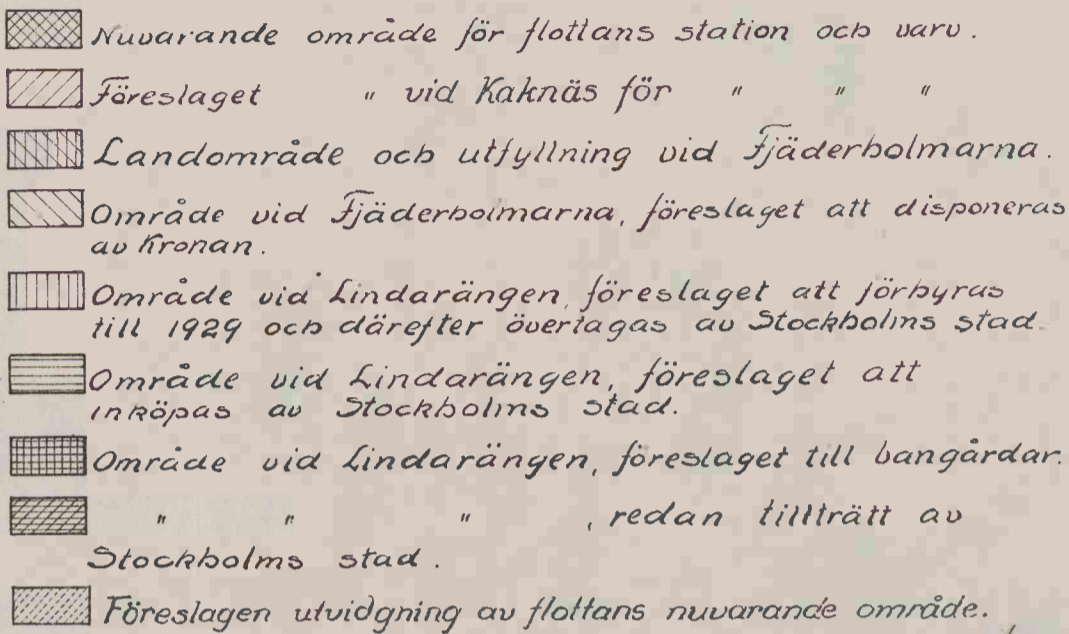 Nuvarande område för flottans station och varv.
Föreslaget " vid Kaknäs för " " "
Landområde och utfyllning vid Fjäderholmarna.
Område vid Fjäderholmarna, föreslaget att disponeras
av Kronan.
Område vid Lindarängen, föreslaget att förhyras
till 1929 och därefter övertagas av Stockholms stad.
Område vid Lindarängen, föreslaget att
inköpas av Stockholms stad.
Område vid Lindarängen, föreslaget till bangårdar.
" " " , redan tillträtt av
Stockholms stad.
Föreslagen utvidgning av flottans nuvarande område.